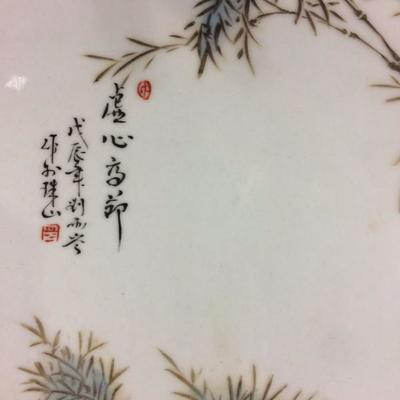 虚心高節
戊辰年刘雨岑
作於珠山